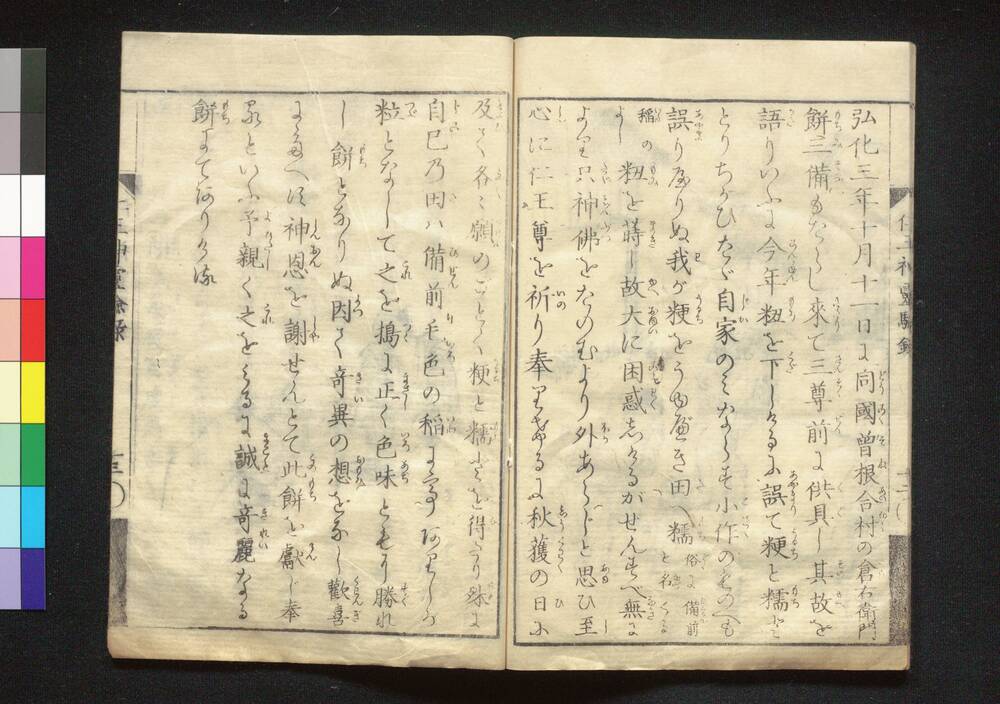 弘化三年十月十一日に同國曾根合村の倉右衛門
餅三備もたらし來て三尊前に供具し其故を
語りいふに今年籾を下しけるに誤て粳と糯と
とりちがひたゞ自家のみならず小作のものへも
誤り廻りぬ我が粳をううべき田へ糯俗に備前と名くる
稲の籾を蒔し故大に困惑しけるがせんすべ無に
より只神佛をたのむより外あらじと思ひ至
心に仁王尊を祈り奉りけるに秋獲の日に
及て各々願のごとく粳と糯とを得たり殊に
自己乃田ハ備前毛色の稲にて
粒となして之を搗に正く色味ともに勝れ
し餅となりぬ因て奇異の想をなし歡喜
にたへず神恩を謝せんとて此餅を獻じ奉
るといふ予親く之をみるに誠に奇麗なる
餅にてありける
仁王神靈驗錄